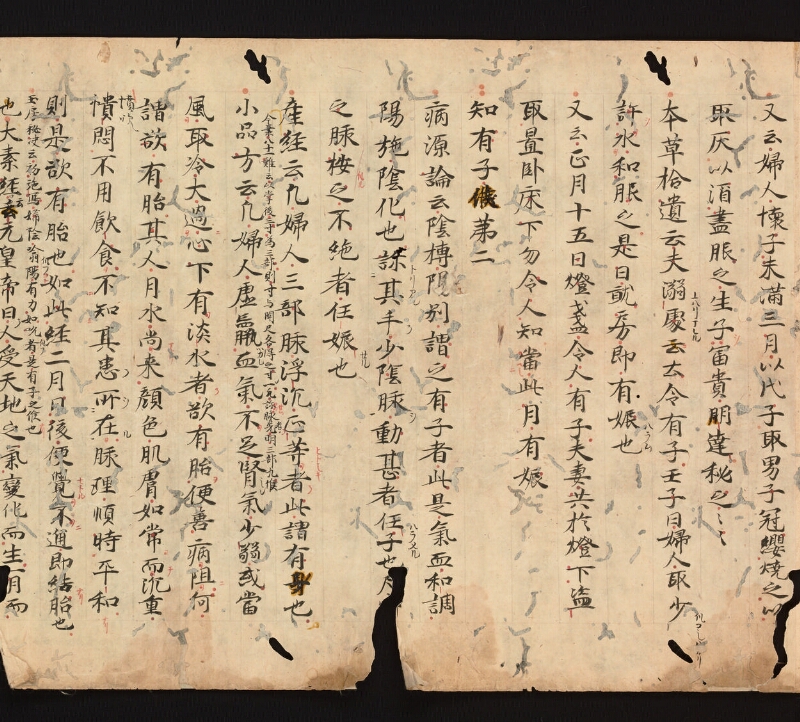 又云婦人懐子未滿三月以戊子取男子冠纓燒之以
取灰以酒盡服之生子富貴明達秘之〻〻
本草拾遺云夫溺處云去令有子壬子日婦人取少
許水和服之是日就房即有娠也
又云正月十五日燈盞令人有子夫妻共於燈下盜
取置卧床下勿令人知當此月有娠
知有子候第二
病源論云陰搏陽別謂之有子者此是氣血和調
陽施陰化也診其手少陰脉動甚者任子也
之脉按之不絶者任娠也
産経云凡婦人三部脉浮沉正等者此謂有身也
小品方云凡婦人虚羸血氣不足腎氣少弱或當
風取冷大過心下有淡水者欲有胎便善病阻何
謂欲有胎其人月水尚来顔色肌膚如常而沉重
憒悶不用飲食不知其患所在脉理順時平和
則是欲有胎也如此経二月日後便覺不通即結胎也
也大素経云元皇帝曰人受天地之氣變化而生一月而